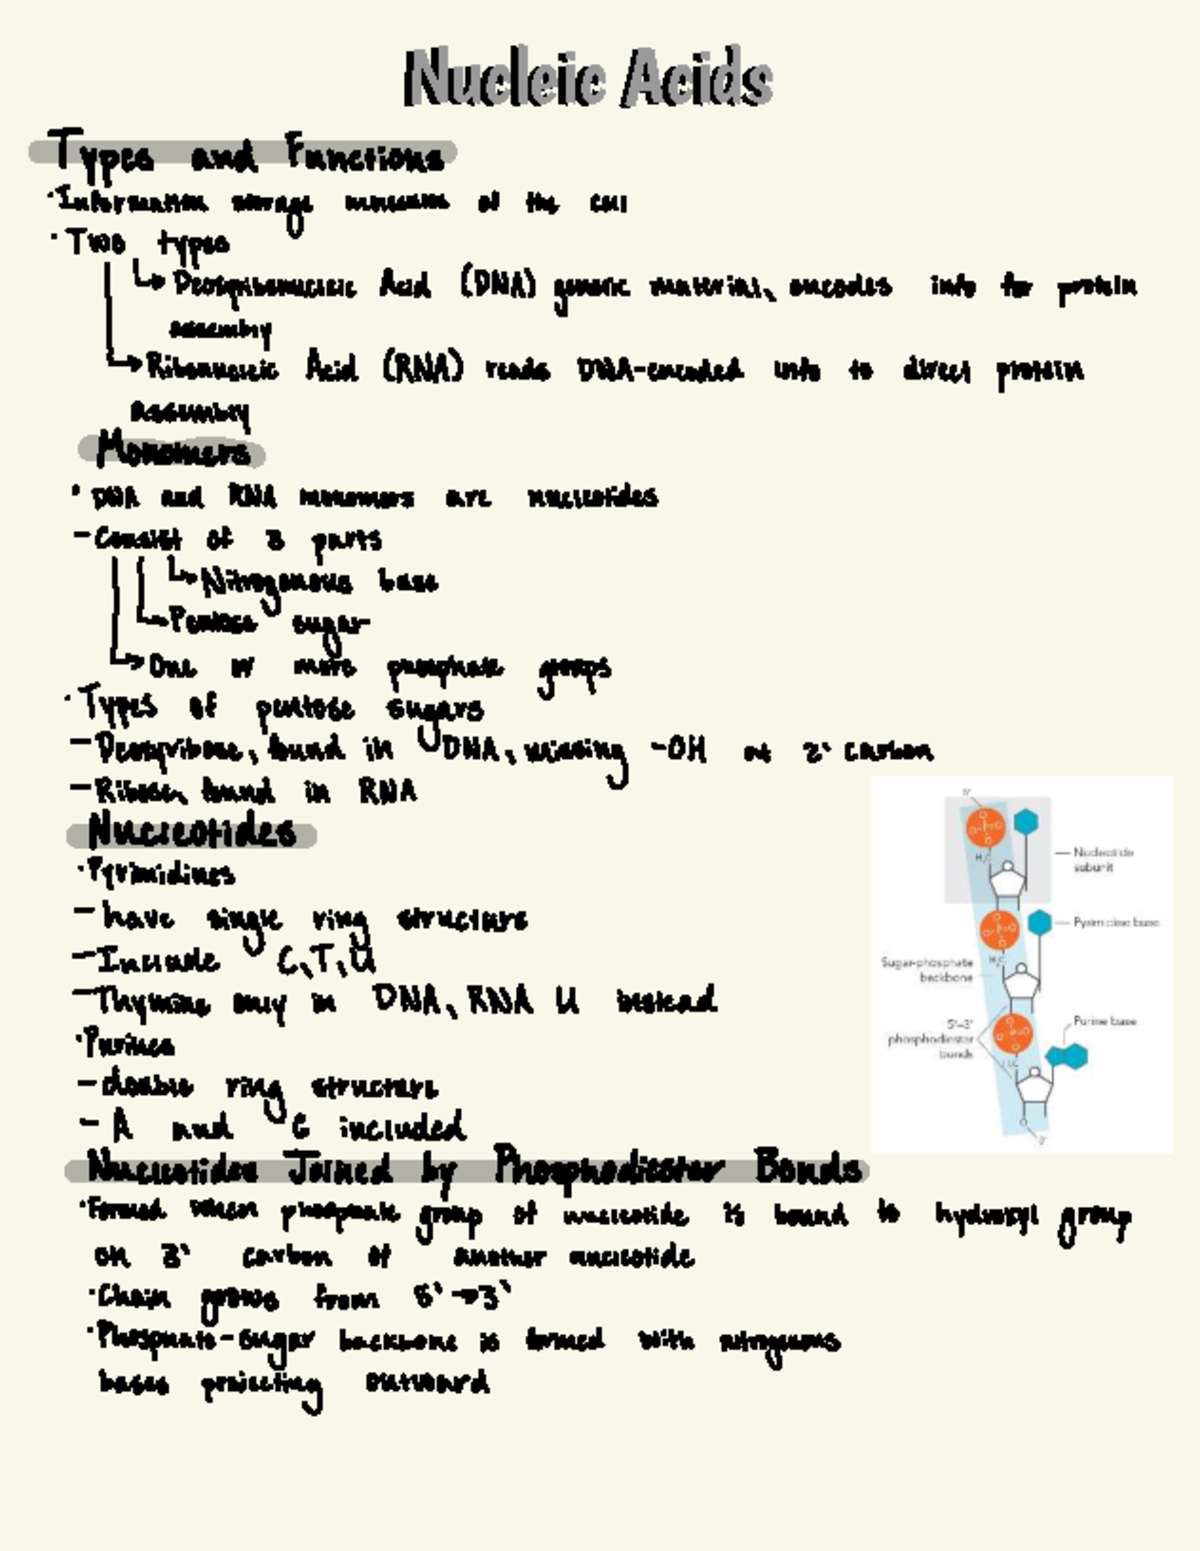 Nucleic Acids
Types and Functions
·Information storage molecules of the cell
·Two types
Deoxyribonucleic Acid (DNA) genetic material, encodes info for protein
assembly
Ribonucleic Acid (RNA) reads DNA-encoded info to direct protein
assembly
Monomers
·DNA and RNA monomers are nucleotides
-Consist of 3 parts
Nitrogenous base
Pentose sugar
One or more phosphate groups
·Types of pentose sugars
-Deoxyribose, found in DNA, missing -OH at 2' carbon
-Ribose, found in RNA
Nucleotides
·Pyrimidines
-have single ring structure
-Include C,T,U
-Thymine only in DNA, RNA U instead
·Purines
-double ring structure
-A and G included
5'
H₂C
Nucleotide
subunit
Pyrimidine base
H₂C
Sugar-phosphate
backbone
5'–3'
phosphodiester
bonds
Purine base
H₂C
3'
Nucleotides Joined by Phosphodiester Bonds
·Formed when phosphate group of nucleotide is bound to hydroxyl group
on 3' carbon of another nucleotide
·Chain grows from 5'→3'
·Phosphate-sugar backbone is formed with nitrogenous
bases projecting outward